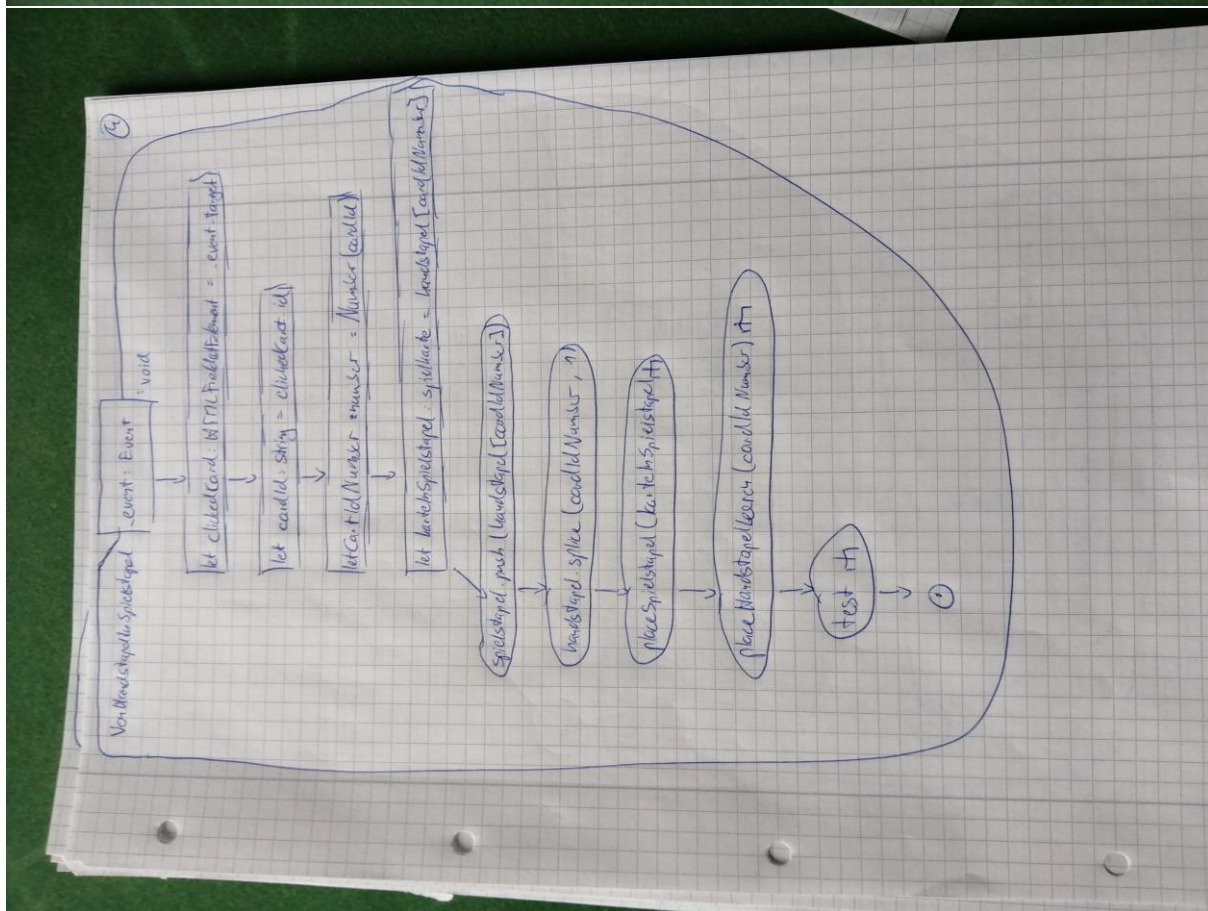 ④
VonHandstapelInSpielstapel
_event: Event
: void
let clickedCard: HTMLFieldSetElement = _event.target
let cardId: string = clickedCard.id
let CartIdNumber: number = Number(cardId)
let karteInSpielstapel: spielkarte = handstapel[cardIdNumber]
spielstapel.push(handstapel[cardIdNumber])
handstapel.splice(cardIdNumber, 1)
placeSpielstapel(karteInSpielstapel)
placeHandstapelLeeren(cardIdNumber)
test